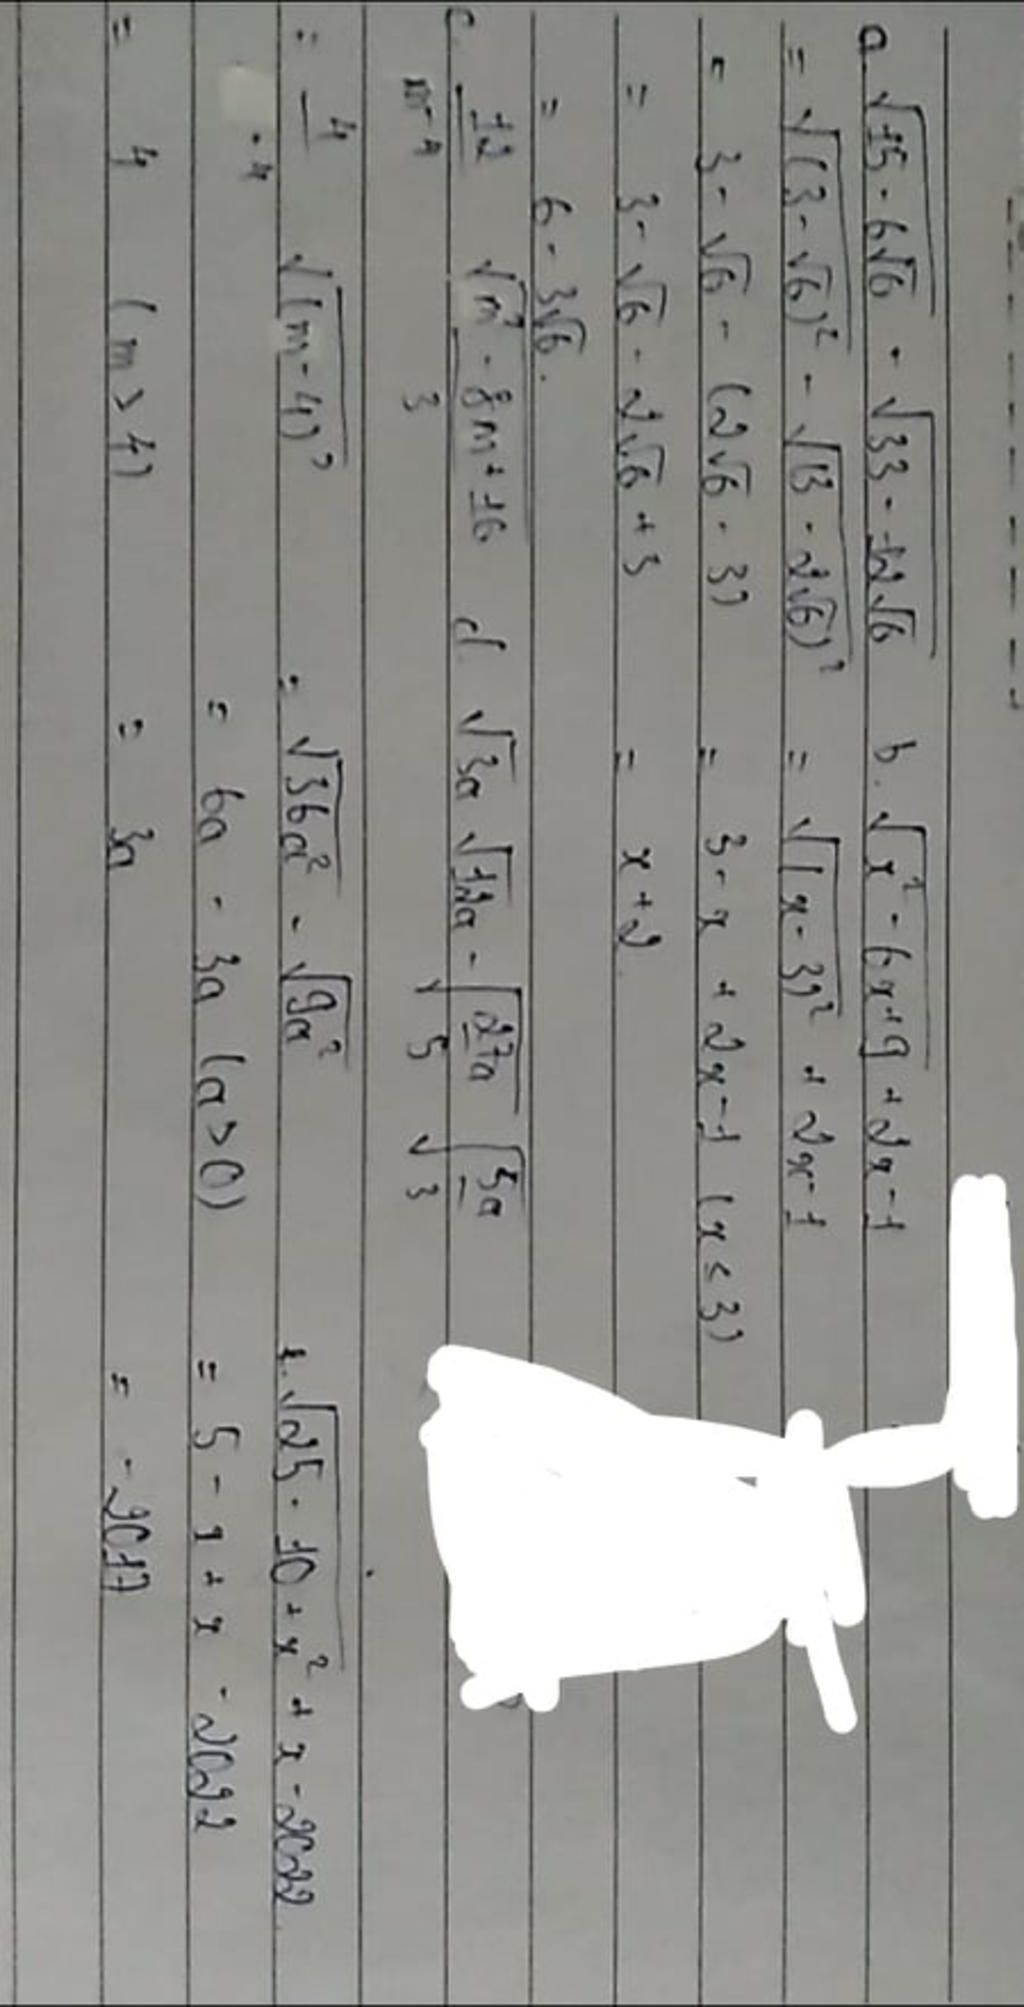 a. √15 - 6√6 - √33 - 12√6
= √(3 - √6)² - √(3 - 2√6)²
= 3 - √6 - (2√6 - 3)
= 3 - √6 - 2√6 + 3
= 6 - 3√6.
b. √x² - 6x + 9 + 2x - 1
= √(x - 3)² + 2x - 1
= 3 - x + 2x - 1 (x ≤ 3)
= x + 2.
c. 12/m-4 √m² - 8m + 16/3
= 4 √(m - 4)²
= 4 (m > 4)
d. √3a √12a - √27a/5 √5a/3
= √36a² - √9a²
= 6a - 3a (a > 0)
= 3a
√25 - 10 + x² + x - 2022
= 5 - x + x - 2022
= - 2017